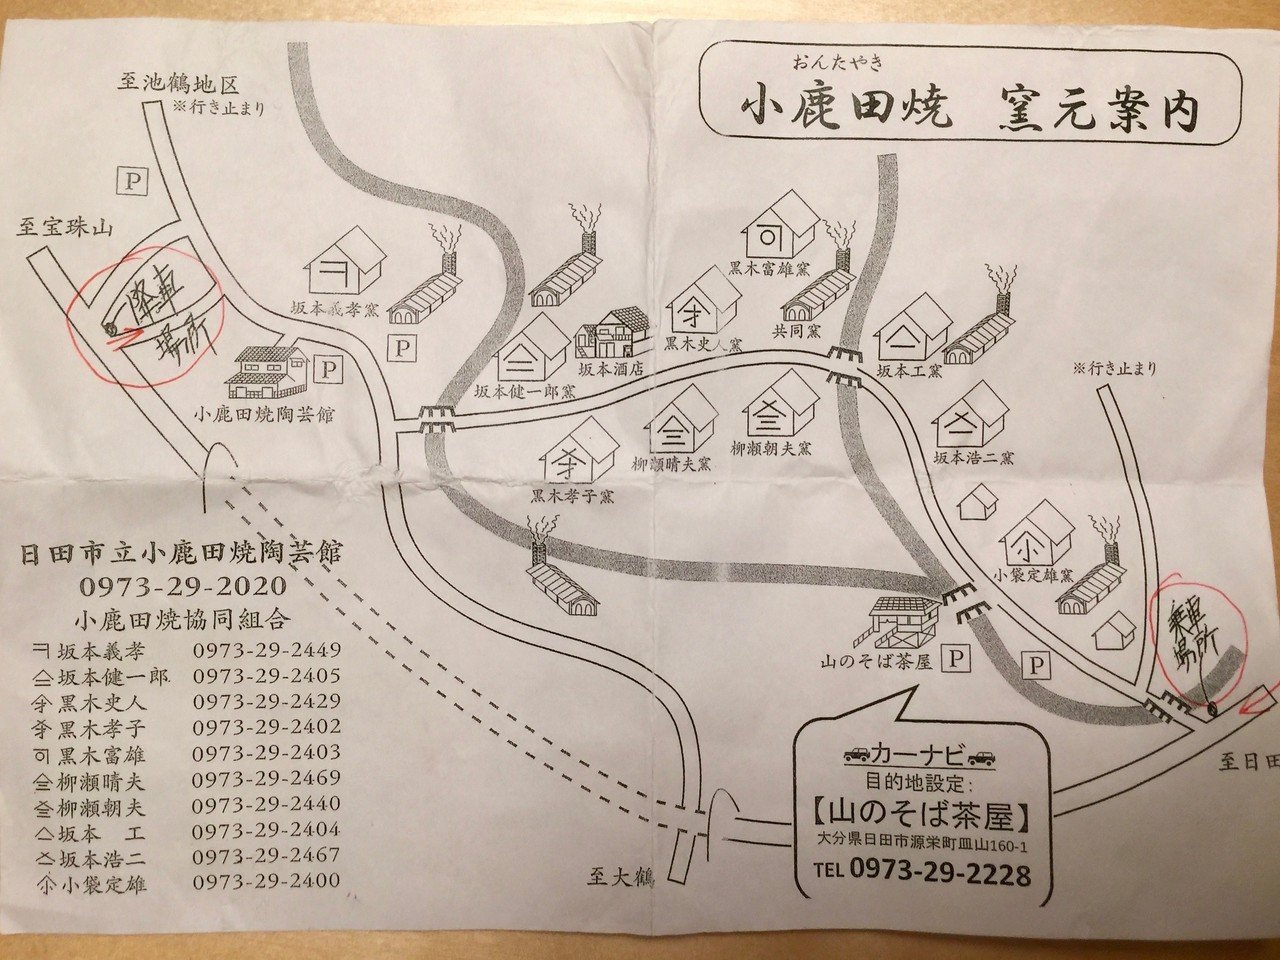 おんたやき
小鹿田焼 窯元案内
至池鶴地区
※行き止まり
P
至宝珠山
降車
場所
坂本義孝窯
P
小鹿田焼陶芸館
P
坂本健一郎窯
坂本酒店
黒木史人窯
黒木富雄窯
共同窯
坂本工窯
※行き止まり
黒木孝子窯
柳瀬晴夫窯
柳瀬朝夫窯
坂本浩二窯
小袋定雄窯
乗車
場所
山のそば茶屋
P
P
至日田
至大鶴
カーナビ
目的地設定:
【山のそば茶屋】
大分県日田市源栄町皿山160-1
TEL 0973-29-2228
日田市立小鹿田焼陶芸館
0973-29-2020
小鹿田焼協同組合
坂本義孝 0973-29-2449
坂本健一郎 0973-29-2405
黒木史人 0973-29-2429
黒木孝子 0973-29-2402
黒木富雄 0973-29-2403
柳瀬晴夫 0973-29-2469
柳瀬朝夫 0973-29-2440
坂本 工 0973-29-2404
坂本浩二 0973-29-2467
小袋定雄 0973-29-2400